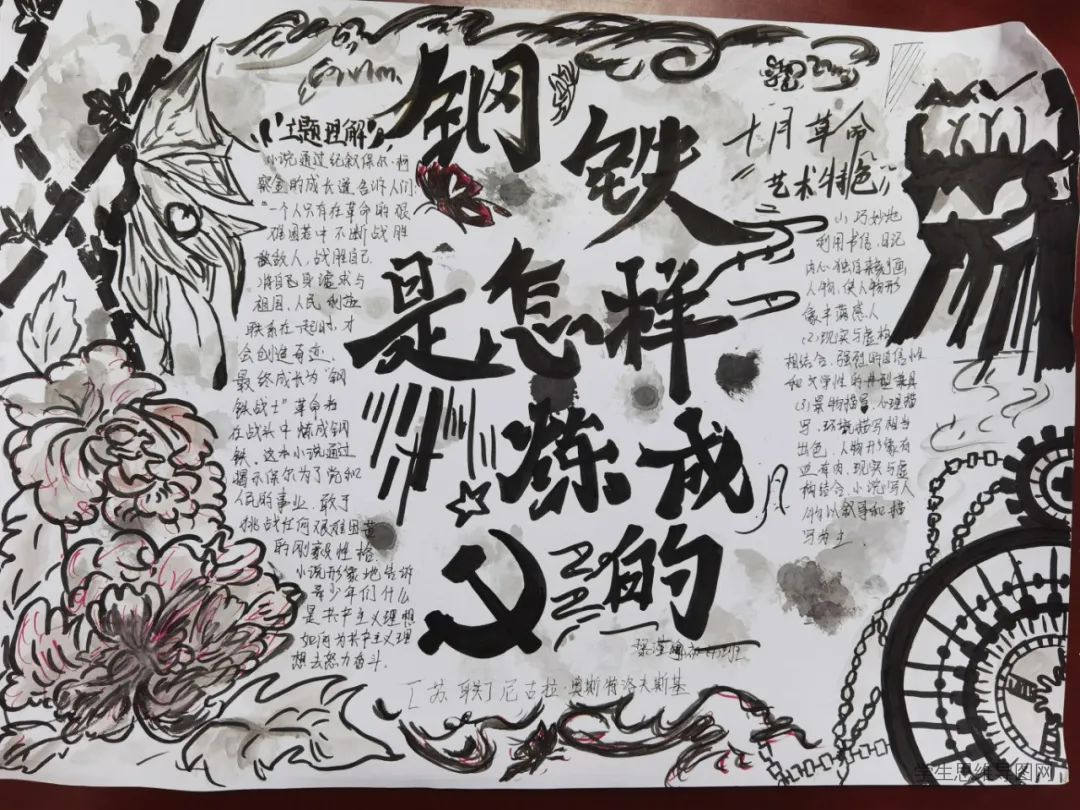 钢铁
是怎样
炼成
的
主题理解
小说通过纪叙保尔·柯
察金的成长道告诉人们:
"一个人只有在革命的艰
难困苦中不断战胜
敌人,战胜自己
将自己身追求与
祖国、人民利益
联系在一起时,才
会创造奇迹.
最终成长为"钢
铁战士"革命者
在战头中炼成钢
铁,这本小说通过
揭示保尔为了党和
人民的事业,敢于
挑战任何艰难困苦
的刚毅性格
小说形象地告诉
青少年们什么
是共产主义理想
如何为共产主义理
想去努力奋斗.
十月革命
"艺术特色"
(1)巧妙地
利用书信、日记
内心独白来刻画
人物,使人物形
象丰满感人
(2)现实与虚构
相结合,强烈的自信性
和文学性的典型兼具
(3)景物描写、心理描
写、环境描写相当
出色,人物形象有
血有肉,现实与虚
构结合,小说写人
物以叙事和描
写为主.
[苏联]尼古拉·奥斯特洛夫斯基
学生思维导图网